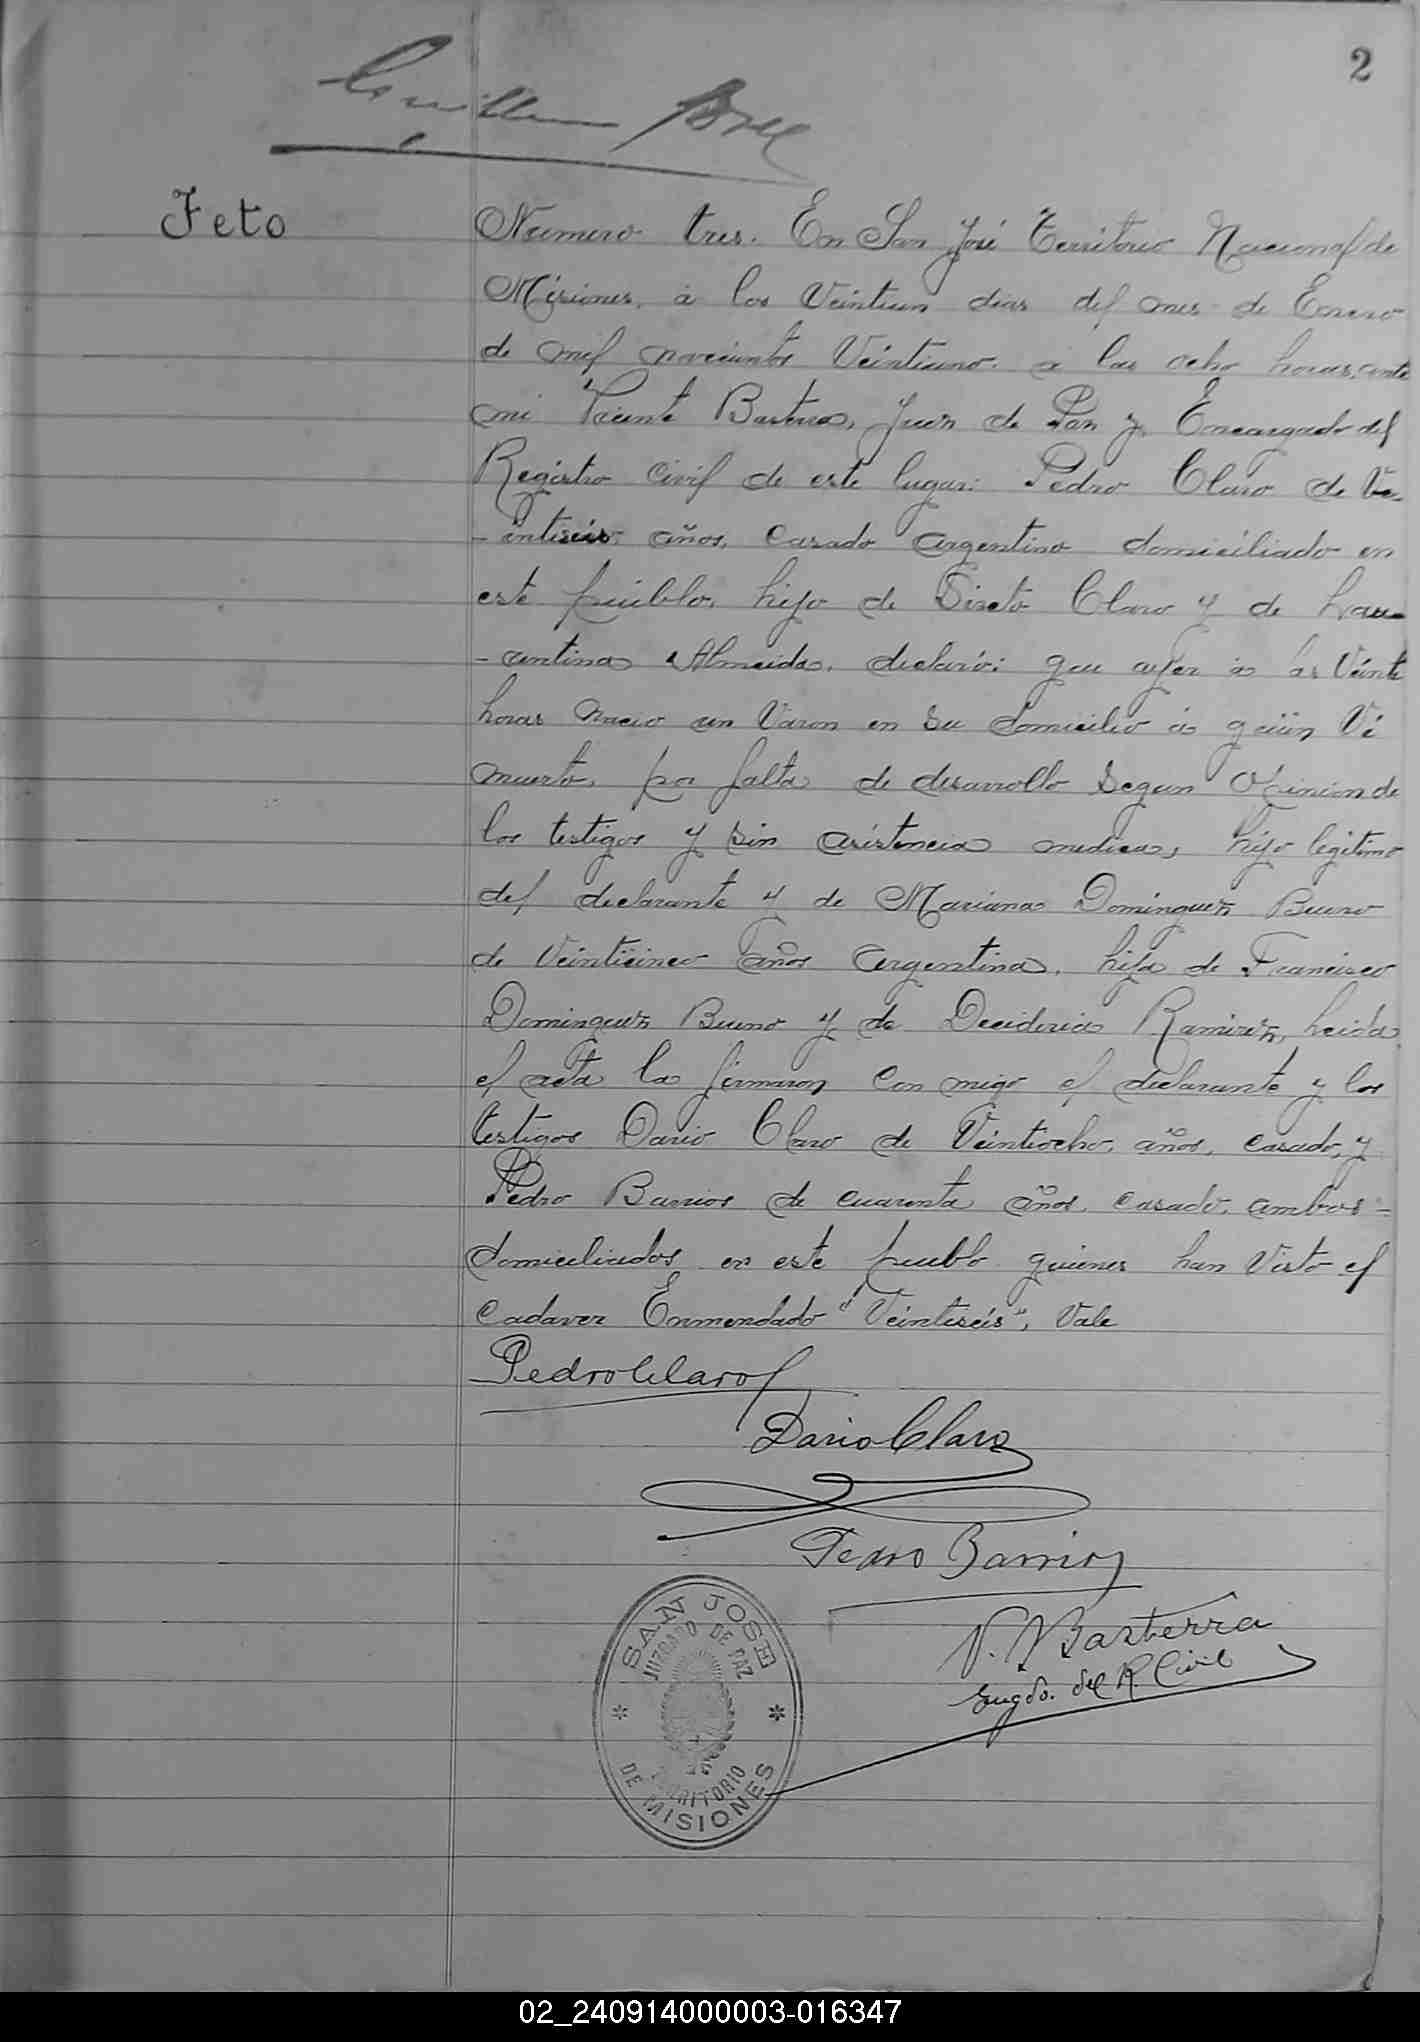 2
Feto
Numero tres. En San José Territorio Nacional de
Misiones, á los Veintiun dias del mes de Enero
de mil novecientos Veintiuno. á las ocho horas, ante
mi Vicente Basterra, Juez de Paz y Encargado del
Registro Civil de este lugar: Pedro Claro de Ve-
-intiseis años, Casado Argentino domiciliado en
este pueblo, hijo de Sixto Claro y de
Almeida, declaró: que ayer á las Veinte
horas nacio un Varon en su domicilio á quien Vi
muerto, por falta de desarrollo Segun Opinion de
los testigos y sin asistencia medica, hijo legitimo
del declarante y de Mariana Dominguez Bueno
de Veinticinco años Argentina, hija de Francisco
Dominguez Bueno y de Decideria Ramirez, leida
el acta la firmaron con migo el declarante y los
testigos Dario Claro de Veintiocho, años, casado, y
Pedro Barrios de cuarenta años, casado, ambos -
domiciliados en este pueblo quienes han Visto el
Cadaver Enmendado "Veintiseis", Vale
Pedro Claro
Dario Claro
Pedro Barrios
V. Basterra
Engdo. del R. Civil
SAN JOSE
JUZGADO DE PAZ
TERRITORIO
DE MISIONES
02_240914000003-016347